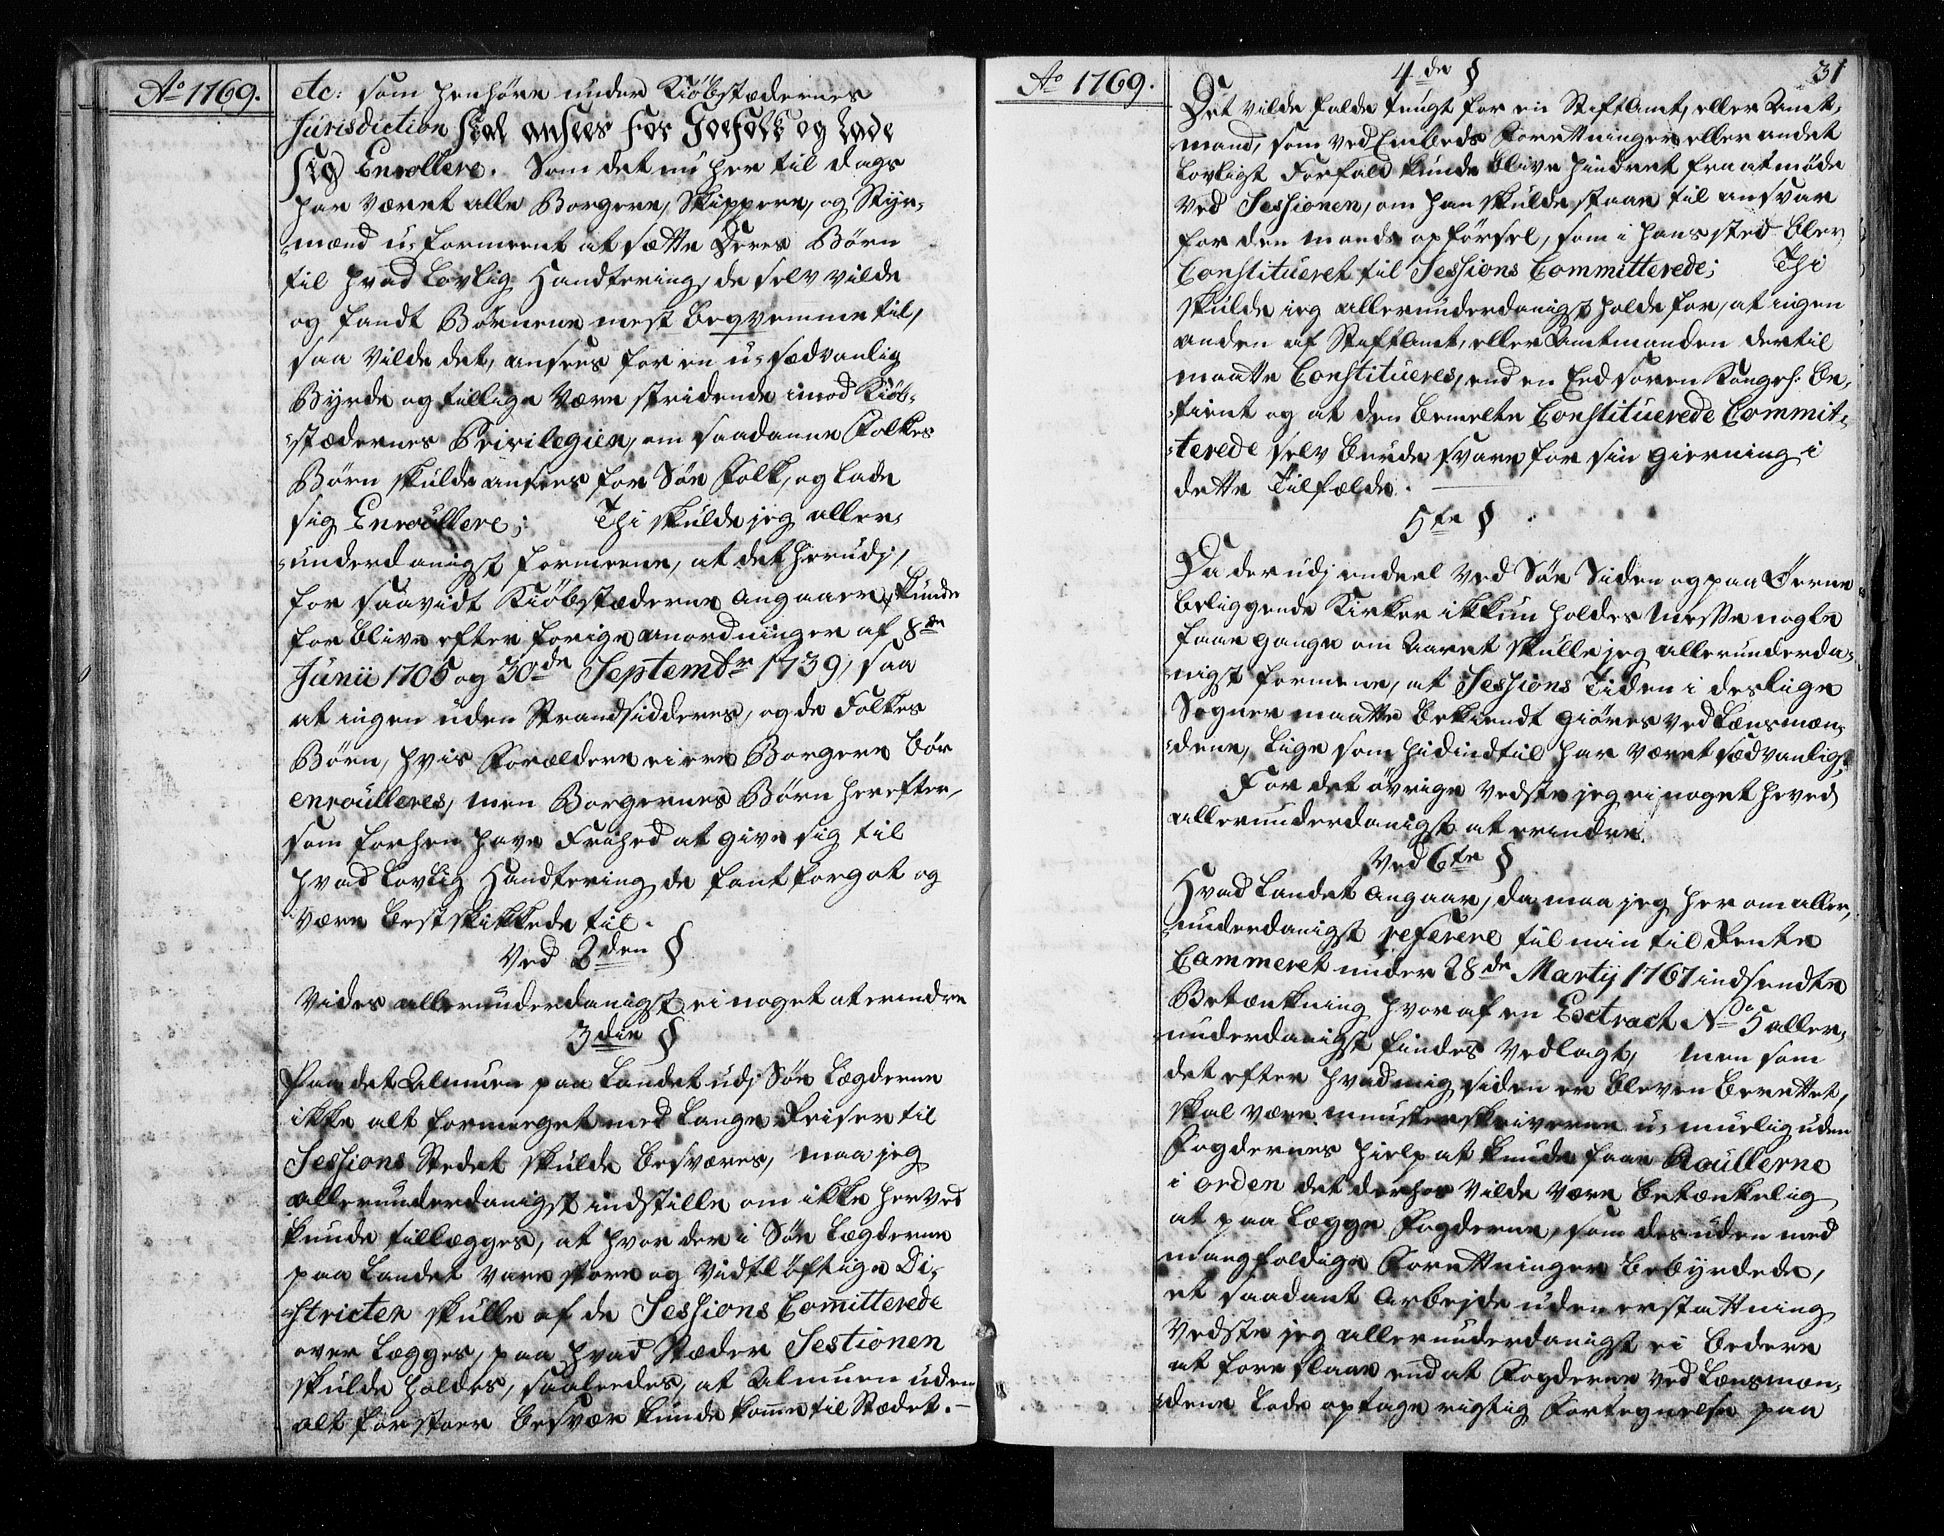 Ao 1769.
etc: som henhöre under Kiöbstædernes
Jurisdiction skal ansees for Søefolk og lade
sig Enrollere. Som det nu her til dags
har været alle Borgere, Skippere, og Styr-
mænd u-formeent at sætte Deres Börn
til hvad Lovlig Handtering de selv vilde
og fandt Börnene mest beqvemme til,
saa vilde det, ansees for en u-sædvanlig
Byrde og tillige være stridende imod Kiöb-
stædernes Privilegier, om saadanne Folkes
Börn skulde ansees for Söe Folk, og lade
sig Enroullere; Thi skulde jeg aller-
underdanigst formeene, at det herudj,
for saavidt Kiöbstæderne angaaer, kunde
forblive efter forige anordninger af 8de
Junii 1705 og 30de Septembr 1739, saa
at ingen uden Strandsidderes, og de Folkes
Börn, hvis Forældre ei ere Borgere bör
enroulleres, men Borgernes Börn herefter,
som forhen have Frihed at give sig til
hvad Lovlig Handtering de fant forgot og
være best skikkede til.
Ved 2den §
Vides allerunderdanigst ei noget at erindre
3die §
Paa det Almuen paa Landet udj Söe Lægderne
ikke alt formeget med lange Reiser til
Sessions Stedet skulde besværes, maa jeg
allerunderdanigst indstille om ikke herved
kunde tillægges, at hvor der i Söe Lægderne
paa Landet vare store og vidtlöftige Di-
stricter skulle af de Sessions Committerede
overlægges, paa hvad Stæder Sestionen
skulde holdes, saaledes, at Almuen uden
alt for stoer besvær kunde komme til Stædet.
Ao 1769.
31
4de §
Det vilde falde tungt for en Stiftamt, eller Amt-
mand, som ved Embeds Forettninger eller andet
Lovligt Forfald kunde blive hindret fra at möde
ved Sessionen, om han skulde staae til ansvar
for den mands opförsel, som i hans sted blev
Constitueret til Sessions Committerede; Thi
skulde jeg allerunderdanigst holde for, at ingen
anden af Stiftamt, eller Amtmanden dertil
maatte Constitueres, end en Eedsoren Kongel: be-
tient og at den bemelte Constituerede Commit-
terede selv burde svare for sin gierning i
dette Tilfælde.
5te §
Da der udj endeel ved Söe Siden og paa Öerne
beliggende Kirker ikkun holdes Messe nogle
faae gange om Aaret skulle jeg allerunderda-
nigst formene, at Sessions Tiden i deslige
Sogner maatte bekiendt giöres ved Lænsmæn-
dene, lige som hidindtil har været sædvanligt,
For det övrige vedste jeg ei noget herved
allerunderdanigst at erindre.
Ved 6te §
Hvad Landet angaar, da maa jeg her om aller-
underdanigst referere til min til Rente
Cammeret under 28de Martij 1767 indsendte
Betænkning hvoraf en Extract No 5 aller-
underdanigst findes vedlagt, men som
det efter hvad mig siden er bleven berettet,
skal være munsterskriverne u-muelig uden
Fogdernes Hielp at kunde faae Roullerne
i orden det derhos vilde være betænkelig
at paa lægge Fogderne, som desuden med
mangfoldige Forettninger bebyrdede,
et saadant Arbejde uden erstattning
Vedste jeg allerunderdanigst ei bedere
at foreslaae end at Fogderne ved Lænsmæn-
dene lode optage rigtig Fortegnelse paa